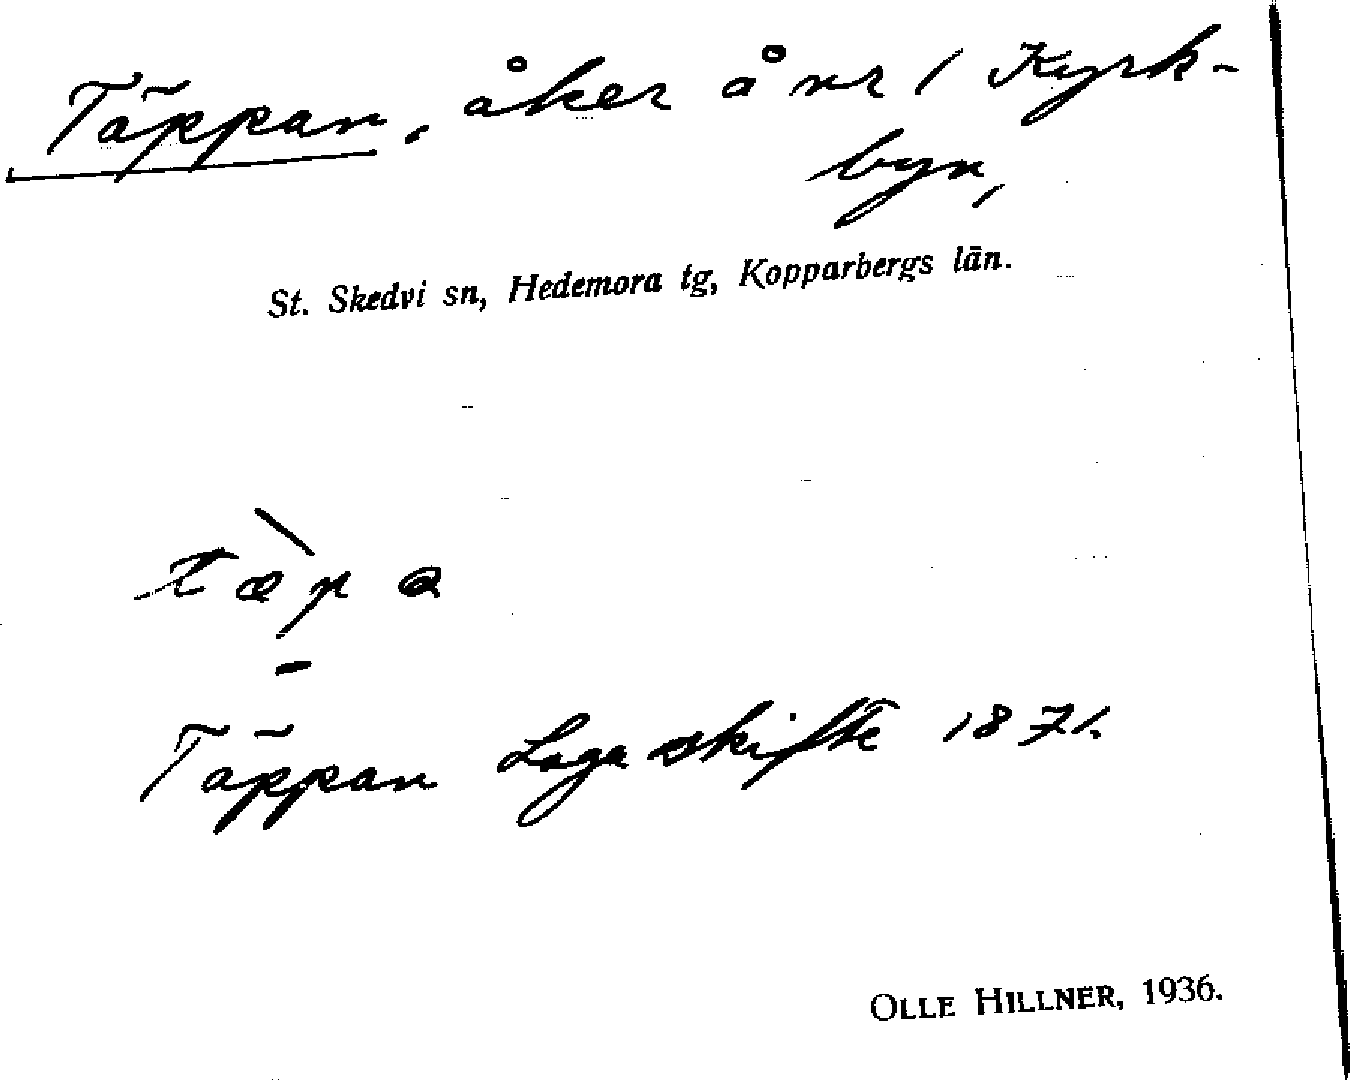 Täppan, åker å nr 1 Kyrk-
byn,
St. Skedvi sn, Hedemora tg, Kopparbergs län.
tæ̀p̱a
Täppan Laga skifte 1871.
OLLE HILLNER, 1936.